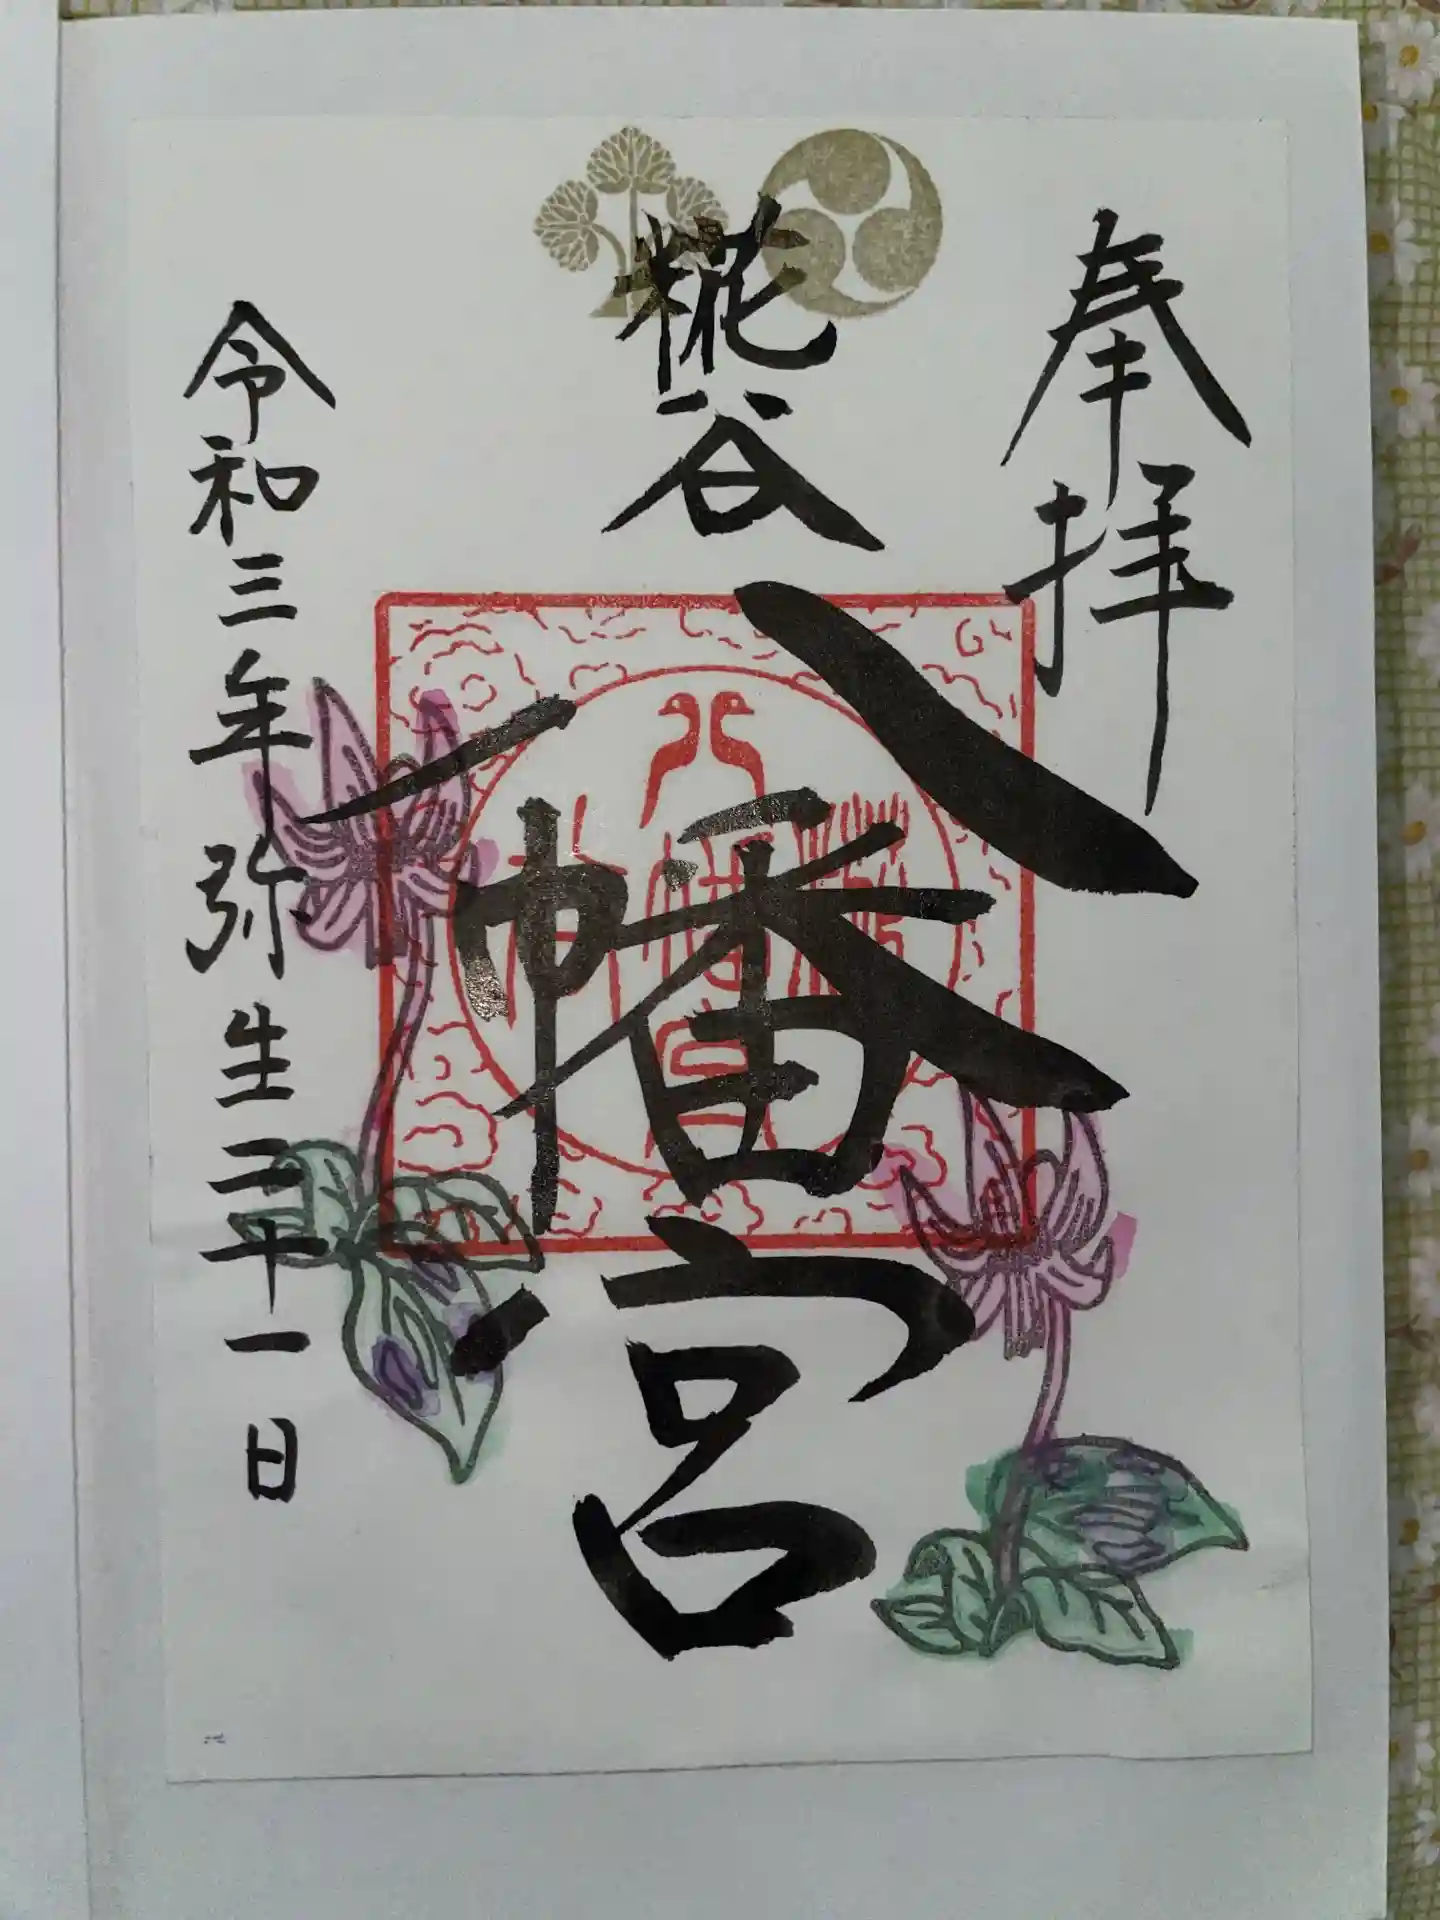 奉拝
糀谷
八幡宮
令和三年弥生二十一日